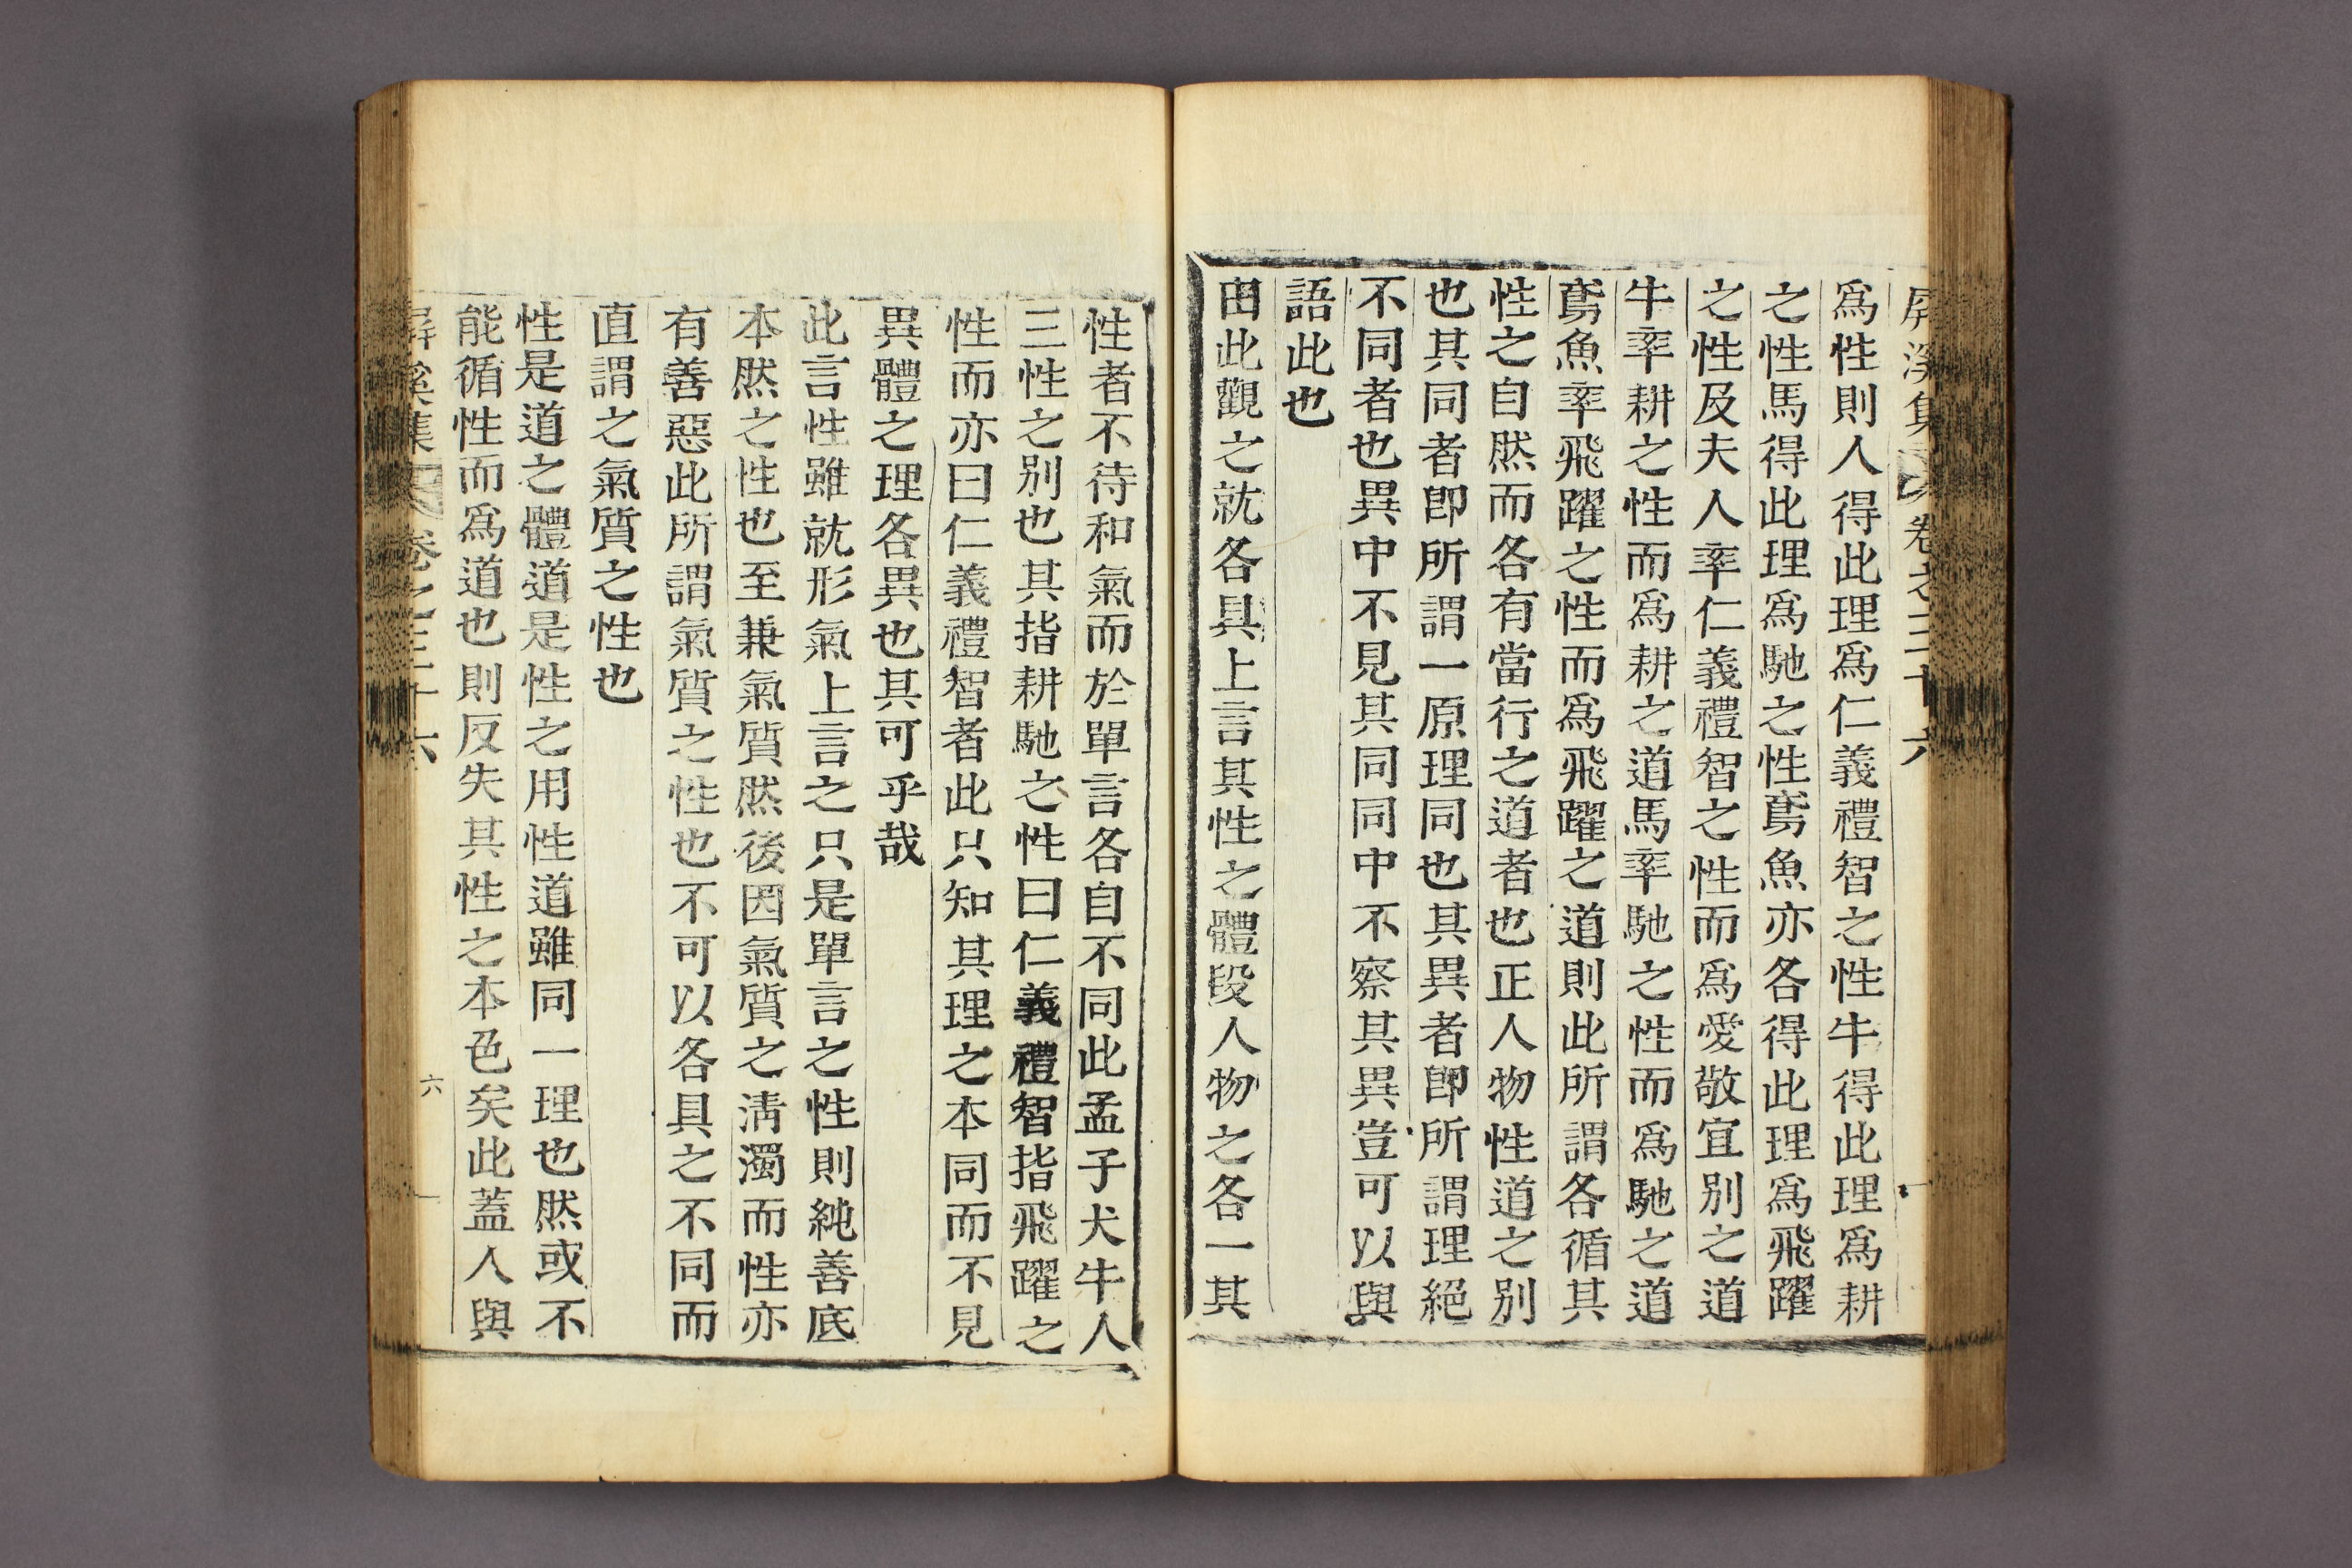 屏溪集 卷之三十六
爲性則人得此理爲仁義禮智之性牛得此理爲耕
之性馬得此理爲馳之性鳶魚亦各得此理爲飛躍
之性及夫人率仁義禮智之性而爲愛敬宜別之道
牛率耕之性而爲耕之道馬率馳之性而爲馳之道
鳶魚率飛躍之性而爲飛躍之道則此所謂各循其
性之自然而各有當行之道者也正人物性道之別
也其同者卽所謂一原理同也其異者卽所謂理絕
不同者也異中不見其同同中不察其異豈可以與
語此也
由此觀之就各具上言其性之體段人物之各一其
性者不待和氣而於單言各自不同此孟子犬牛人
三性之別也其指耕馳之性曰仁義禮智指飛躍之
性而亦曰仁義禮智者此只知其理之本同而不見
異體之理各異也其可乎哉
此言性雖就形氣上言之只是單言之性則純善底
本然之性也至兼氣質然後因氣質之淸濁而性亦
有善惡此所謂氣質之性也不可以各具之不同而
直謂之氣質之性也
性是道之體道是性之用性道雖同一理也然或不
能循性而爲道也則反失其性之本色矣此蓋人與
屏溪集 卷之三十六
六